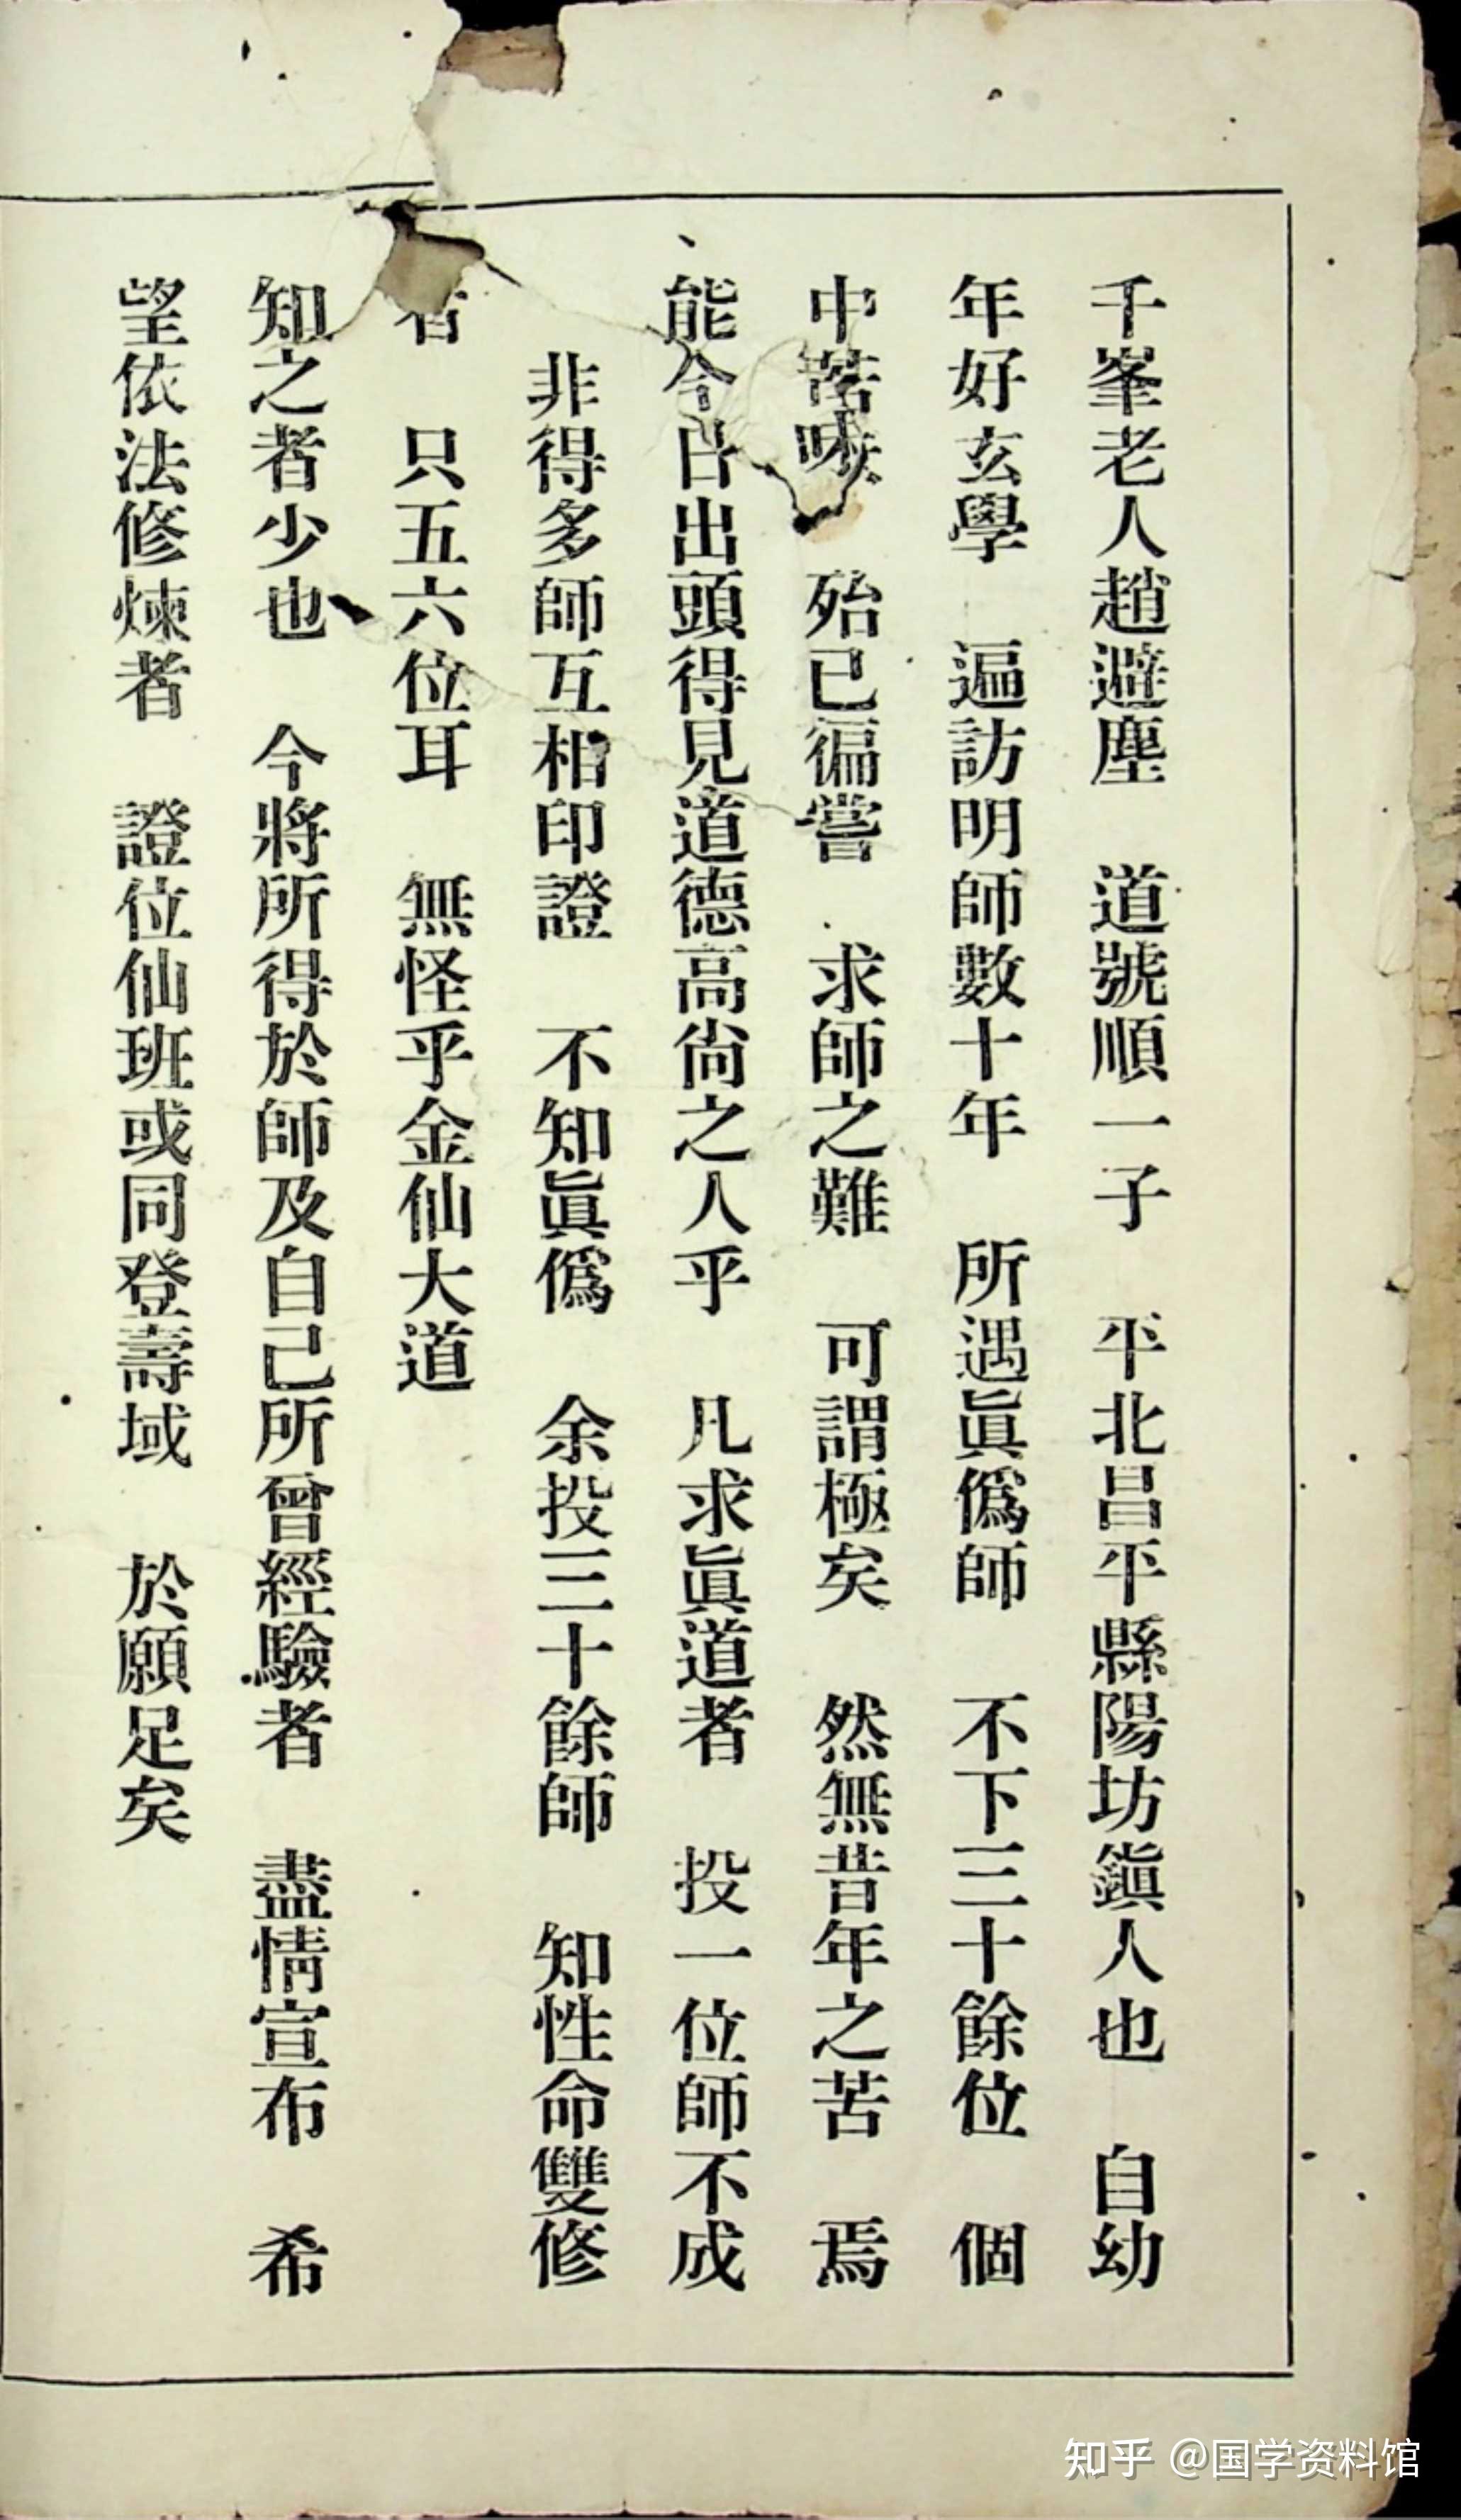 千峯老人趙避塵　道號順一子　平北昌平縣陽坊鎭人也　自幼
年好玄學　遍訪明師數十年　所遇眞僞師　不下三十餘位　個
中苦　殆已徧嘗　求師之難　可謂極矣　然無昔年之苦　焉
能今日出頭得見道德高尙之人乎　凡求眞道者　投一位師不成
非得多師互相印證　不知眞僞　余投三十餘師　知性命雙修
者　只五六位耳　無怪乎金仙大道
知之者少也　今將所得於師及自己所曾經驗者　盡情宣布　希
望依法修煉者　證位仙班或同登壽域　於願足矣
知乎 @国学资料馆